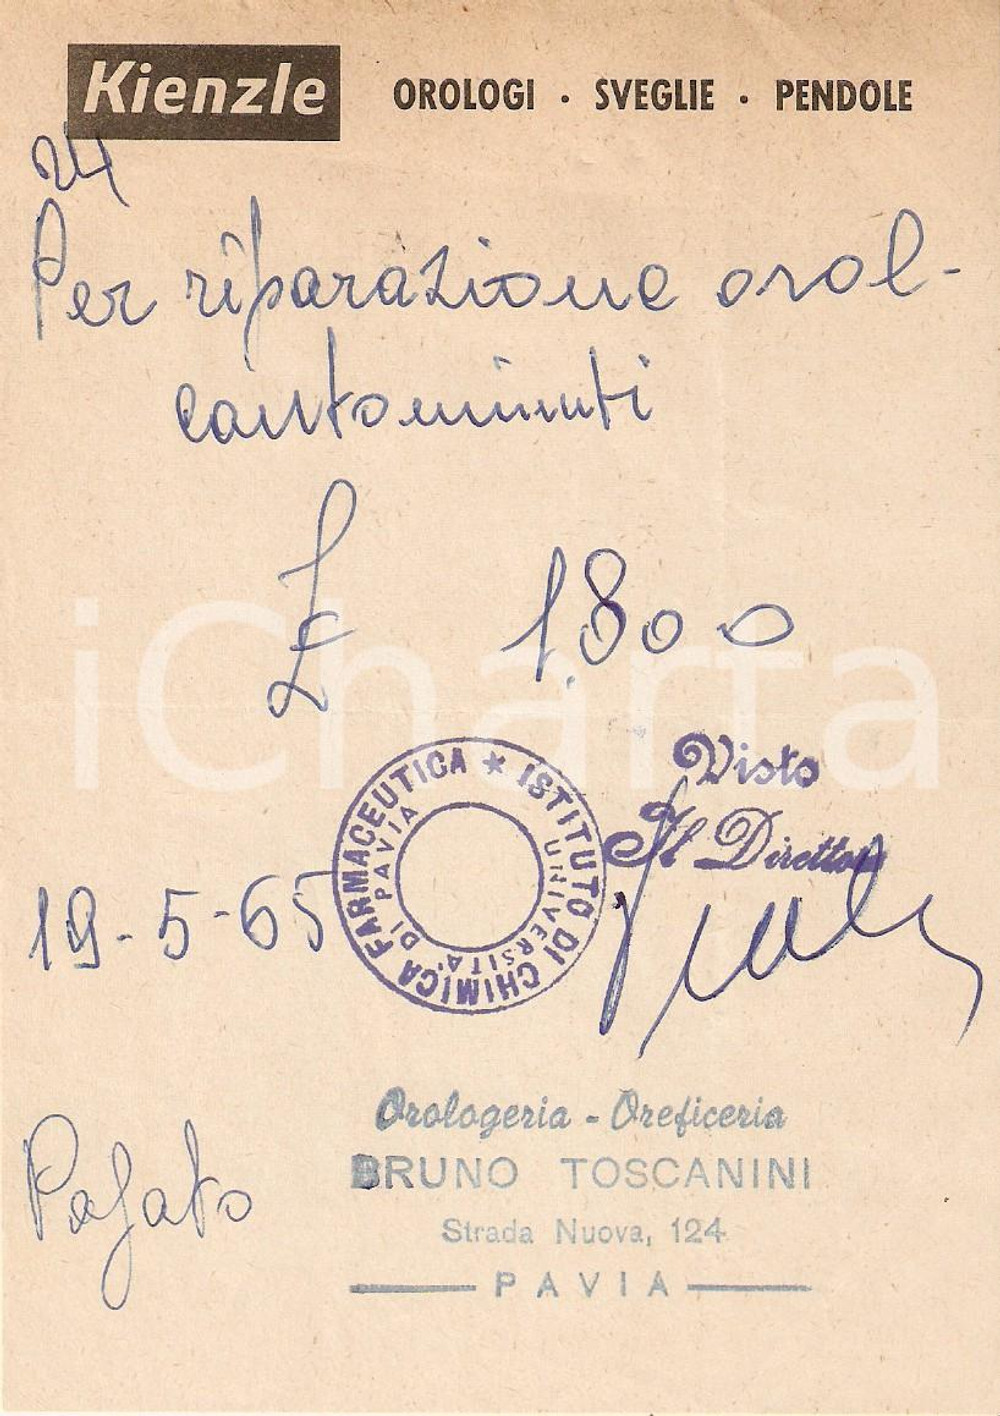 Kienzle OROLOGI · SVEGLIE · PENDOLE
24
Per riparazione orol-
contominuti
£ 1.800
iCharta
Visto
Il Direttore
ISTITUTO DI CHIMICA FARMACEUTICA ★
UNIVERSITA' DI PAVIA
19-5-65
Orologeria - Oreficeria
BRUNO TOSCANINI
Strada Nuova, 124
PAVIA
Pagato